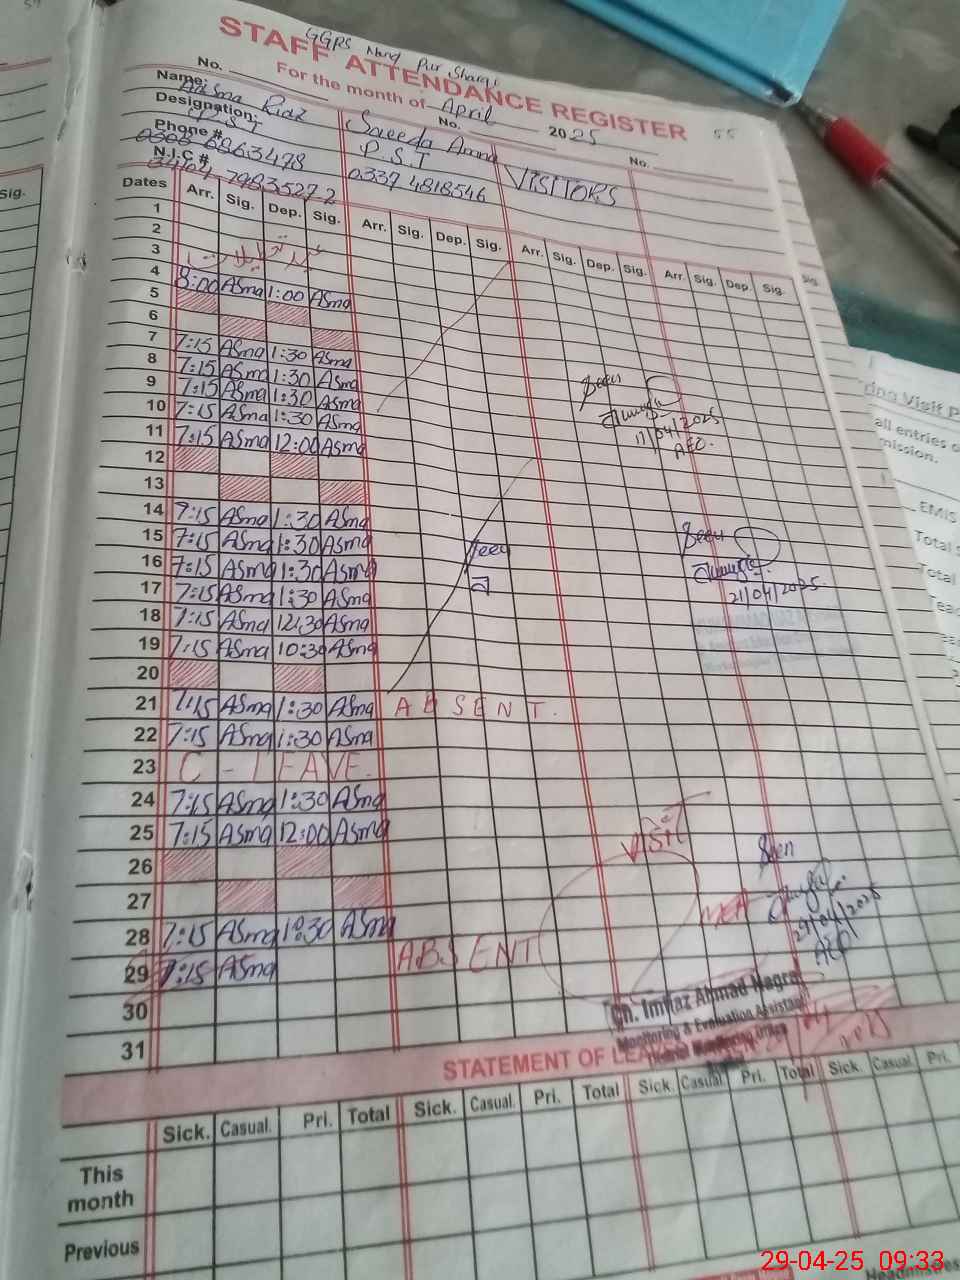 GGPS Nand Pur Sharqi
STAFF ATTENDANCE REGISTER
For the month of April 2025
55
No. No. No.
Name: Asma Riaz Saeeda Amna VISITORS
Designation: P.S.T P.S.T
Phone # 0337 4818546
N.I.C #
Dates Arr. Sig. Dep. Sig. Arr. Sig. Dep. Sig. Arr. Sig. Dep. Sig. Arr. Sig. Dep. Sig.
1
2
3
4 8:00 ASma 1:00 ASma
5
6
7 7:15 ASma 1:30 ASma
8 7:15 ASma 1:30 ASma
9 7:15 ASma 1:30 ASma
10 7:15 ASma 1:30 ASma
11 7:15 ASma 12:00 ASma
Seen
11/04/2025
AEO.
12
13
14 7:15 ASma 1:30 ASma
15 7:15 ASma 1:30 ASma
16 7:15 ASma 1:30 ASma
17 7:15 ASma 1:30 ASma
18 7:15 ASma 12:30 ASma
19 7:15 ASma 10:30 ASma
Seen
21/04/2025.
20
21 7:15 ASma 1:30 ASma ABSENT.
22 7:15 ASma 1:30 ASma
23 C-LEAVE.
24 7:15 ASma 1:30 ASma
25 7:15 ASma 12:00 ASma
26
27
28 7:15 ASma 1:30 ASma
29 7:15 ASma ABSENT
30
31
VISIT
MEA
Seen
29/04/2025
AEO
Ch. Imtiaz Ahmad Nagra
Monitoring & Evaluation Assistant
STATEMENT OF
Sick. Casual. Pri. Total Sick. Casual. Pri. Total Sick. Casual. Pri. Total Sick. Casual. Pri.
This month
Previous
Visit P
all entries o
mission.
EMIS
Total
Total
29-04-25 09:33